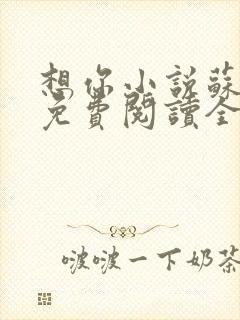 想你小説蘇
免費閱讀全
啵啵一下奶茶